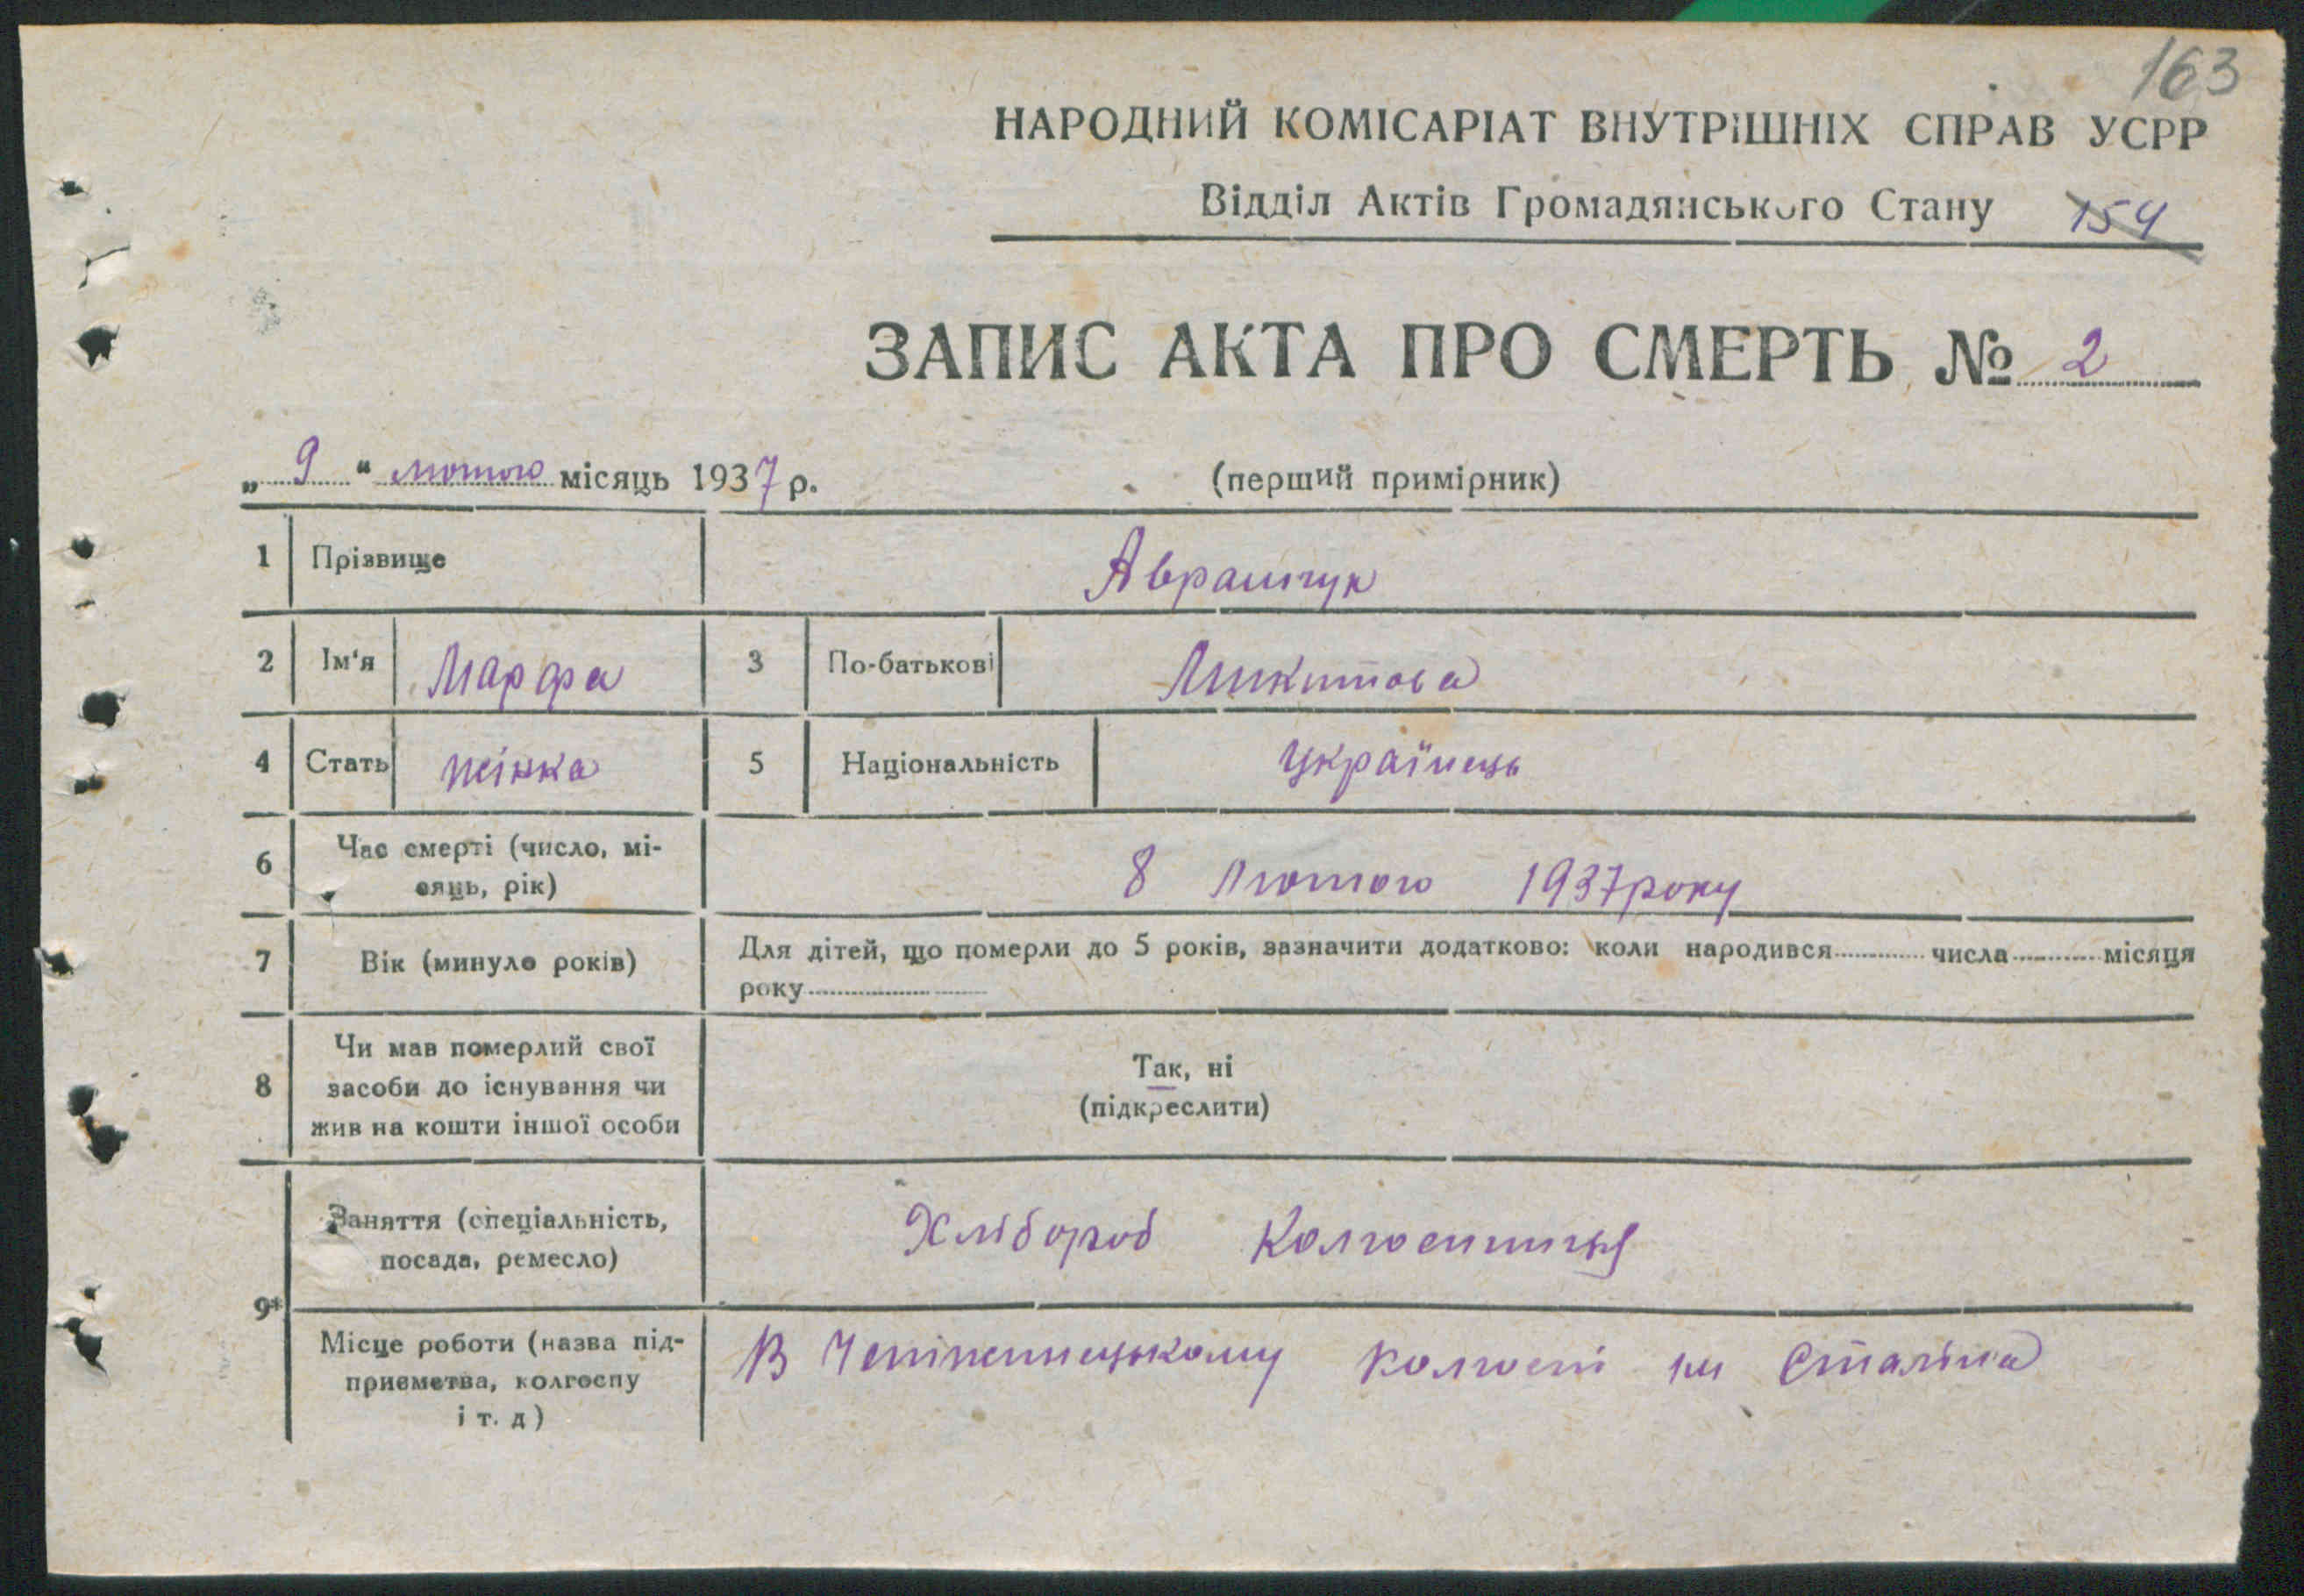 163
НАРОДНИЙ КОМІСАРІАТ ВНУТРІШНІХ СПРАВ УСРР
Відділ Актів Громадянського Стану 154
ЗАПИС АКТА ПРО СМЕРТЬ № 2
„ 9 “ лютого місяць 1937 р. (перший примірник)
1 Прізвище Аврамчук
2 Ім'я Марфа 3 По-батькові Микитова
4 Стать жінка 5 Національність Українець
6 Час смерті (число, мі-
сяць, рік) 8 Лютого 1937 року
7 Вік (минуло років) Для дітей, що померли до 5 років, зазначити додатково: коли народився числа місяця
року
8 Чи мав померлий свої
засоби до існування чи
жив на кошти іншої особи
Так, ні
(підкреслити)
9* Заняття (спеціальність,
посада, ремесло) Хлібороб Колгоспниця
Місце роботи (назва під-
приємства, колгоспу
і т. д)
В колгоспі ім Сталіна